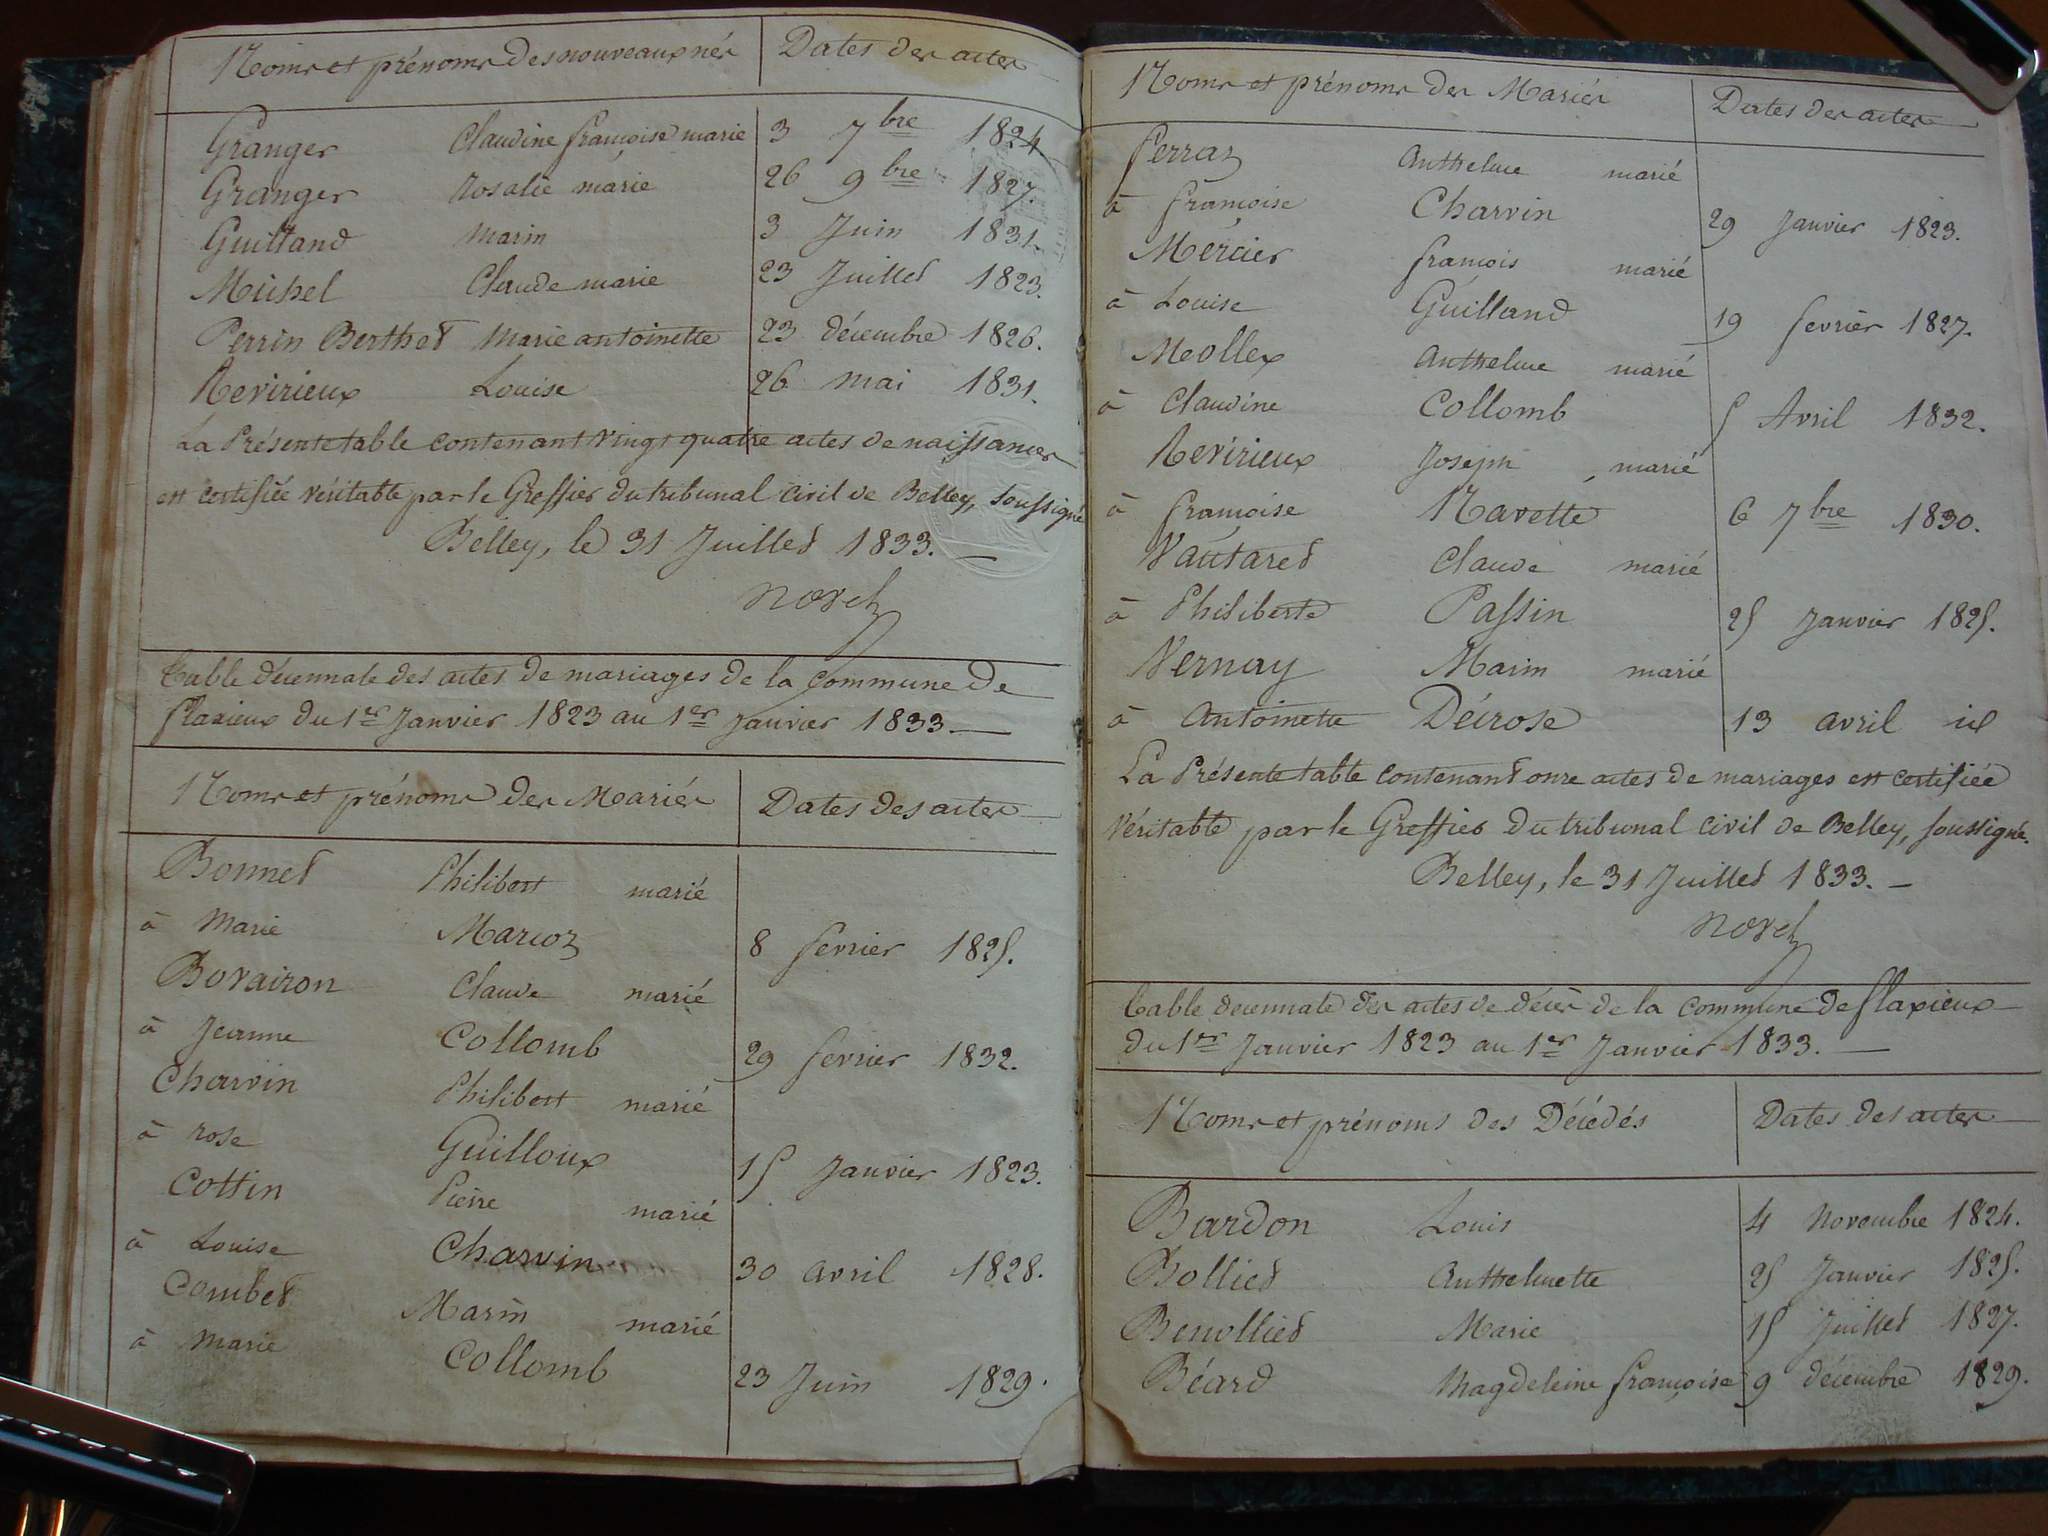 Noms et prénoms des nouveaux nés Dates des actes
Granger Claudine françoise marie 3 7bre 1824
Granger Rosalie marie 26 9bre 1827.
Guilland Marin 3 Juin 1831.
Michel Claude marie 23 Juillet 1823.
Perrin Berthet Marie antoinette 23 décembre 1826.
Revirieux Louise 26 mai 1831.
La Présente table contenant Vingt quatre actes de naissances
est certifiée véritable par le Greffier du tribunal civil de Belley, soussigné
Belley, le 31 Juillet 1833.
Table décennale des actes de mariages de la Commune de
flaxieux du 1er Janvier 1823 au 1er Janvier 1833
Noms et prénoms des Mariés Dates des actes
Bonnet Philibert marié
à Marie Marcoz 8 fevrier 1825.
Bovairon Claude marié
à Jeanne Collomb 29 fevrier 1832.
Charvin Philibert marié
à rose Guilloux 15 Janvier 1823.
Cottin Pierre marié
à Louise Charvin 30 avril 1828.
Combet Marin marié
à Marie Collomb 23 Juin 1829.
Noms et prénoms des Mariés Dates des actes
ferraz Anthelme marié
à françoise Charvin 29 Janvier 1823.
Mercier françois marié
à Louise Guilland 19 fevrier 1827.
Meollex Anthelme marié
à Claudine Collomb 5 Avril 1832.
Revirieux Joseph marié
à françoise Navette 6 7bre 1830.
Vautaret Claude marié
à Philiberte Passin 25 Janvier 1825.
Vernay Marin marié
à Antoinette Décrose 13 avril id
La Présente table contenant onze actes de mariages est certifiée
Véritable par le Greffier du tribunal civil de Belley, soussigné.
Belley, le 31 Juillet 1833.
Table decennale des actes de décès de la Commune de flaxieux
du 1er Janvier 1823 au 1er Janvier 1833.
Noms et prénoms des Décédés Dates des actes
Bardon Louis 4 Novembre 1824.
Bolliet Anthelmette 25 Janvier 1825.
Benolliet Marie 15 Juillet 1827.
Béard Magdeleine françoise 9 décembre 1829.